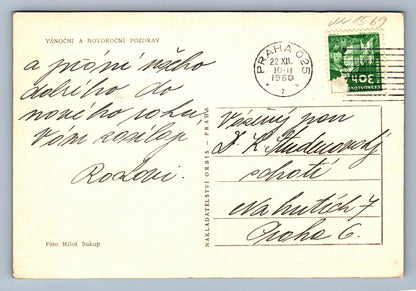 VÁNOČNÍ A NOVOROČNÍ POZDRAV
a přání všeho
dobrého do
nového roku
Vám
PRAHA 025
22.XII.
10-11
1960
7
30h
ČESKOSLOVENSKO
Vážený pan
Na hutích 7
Praha 6.
NAKLADATELSTVÍ ORBIS - PRAHA
Foto Miloš Sukup